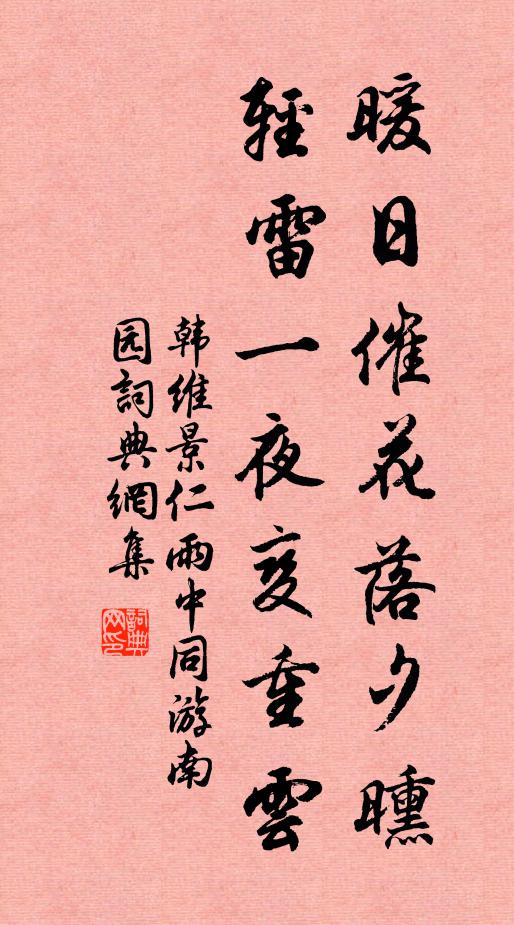 暖日催花落夕曛
轻雷一夜变重雲
韩维景仁雨中同游南
园詞典網集
詞典网印